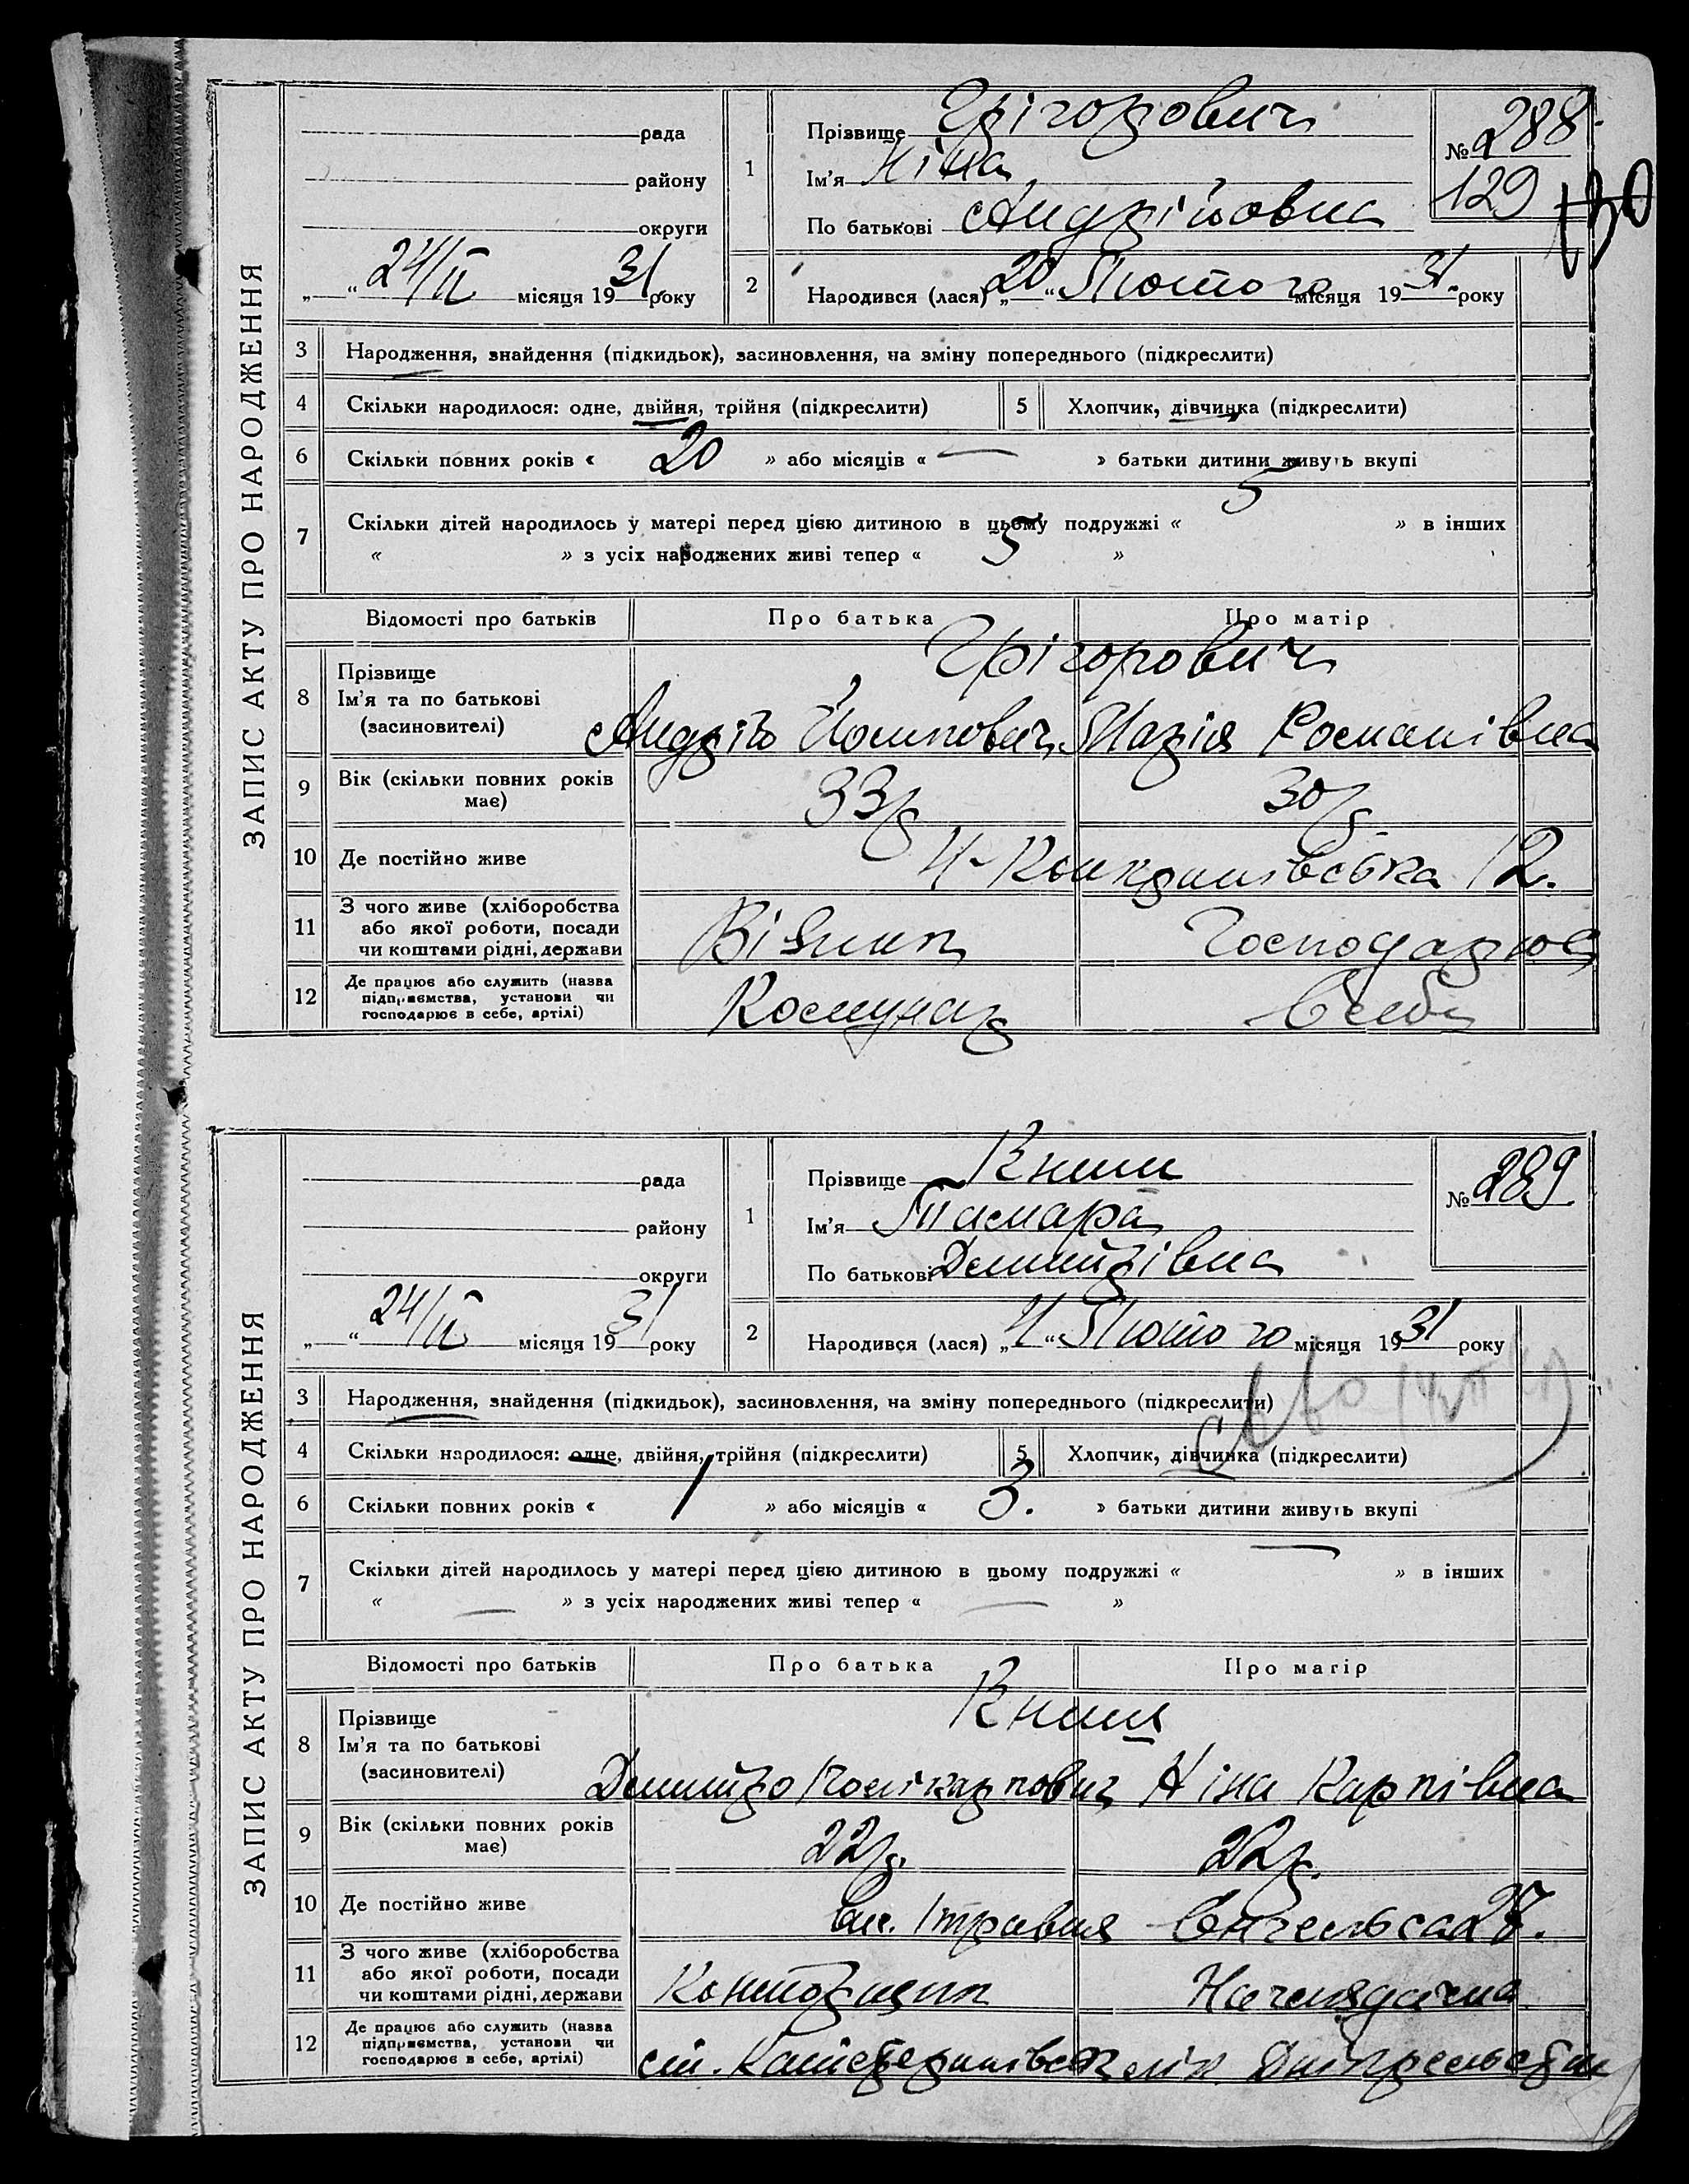 ЗАПИС АКТУ ПРО НАРОДЖЕННЯ
рада
району
округи
„ “ 24/II місяця 1931 року
1
Прізвище Грігорович
Ім'я Ніна
По батькові Андрійовна
№ 288
129 130
2
Народився (лася) „20“ Лютого місяця 1931 року
3 Народження, знайдення (підкидьок), засиновлення, на зміну попереднього (підкреслити)
4 Скільки народилося: одне, двійня, трійня (підкреслити)
5 Хлопчик, дівчинка (підкреслити)
6 Скільки повних років « 20 » або місяців « — » батьки дитини живуть вкупі
7 Скільки дітей народилось у матері перед цією дитиною в цьому подружжі « 5 » в інших
« » з усіх народжених живі тепер « 5 »
Відомості про батьків Про батька Про матір
8 Прізвище Грігорович
Ім'я та по батькові
(засновителі) Андрій Йосипович Марія Романівна
9 Вік (скільки повних років має) 33 р 30 р.
10 Де постійно живе 12.
11 З чого живе (хліборобства
або якої роботи, посади
чи коштами рідні, держави Візник Господарює
12 Де працює або служить (назва
підприємства, установи чи
господарює в себе, артілі) Комунар В себе
ЗАПИС АКТУ ПРО НАРОДЖЕННЯ
рада
району
округи
„ “ 24/II місяця 1931 року
1
Прізвище Книш
Ім'я Тамара
По батькові Дмитрівна
№ 289
2
Народився (лася) „4“ Лютого місяця 1931 року
3 Народження, знайдення (підкидьок), засиновлення, на зміну попереднього (підкреслити)
4 Скільки народилося: одне, двійня, трійня (підкреслити)
5 Хлопчик, дівчинка (підкреслити)
6 Скільки повних років « 1 » або місяців « 3. » батьки дитини живуть вкупі
7 Скільки дітей народилось у матері перед цією дитиною в цьому подружжі « — » в інших
« — » з усіх народжених живі тепер « — »
Відомості про батьків Про батька Про матір
8 Прізвище Книш
Ім'я та по батькові
(засиновителі) Дмитро Полікарпович Ніна Карпівна
9 Вік (скільки повних років має) 22 р. 22 р.
10 Де постійно живе вл. 1 травня Енгельса 27.
11 З чого живе (хліборобства
або якої роботи, посади
чи коштами рідні, держави Конторщик Наглядачка
12 Де працює або служить (назва
підприємства, установи чи
господарює в себе, артілі) ст.